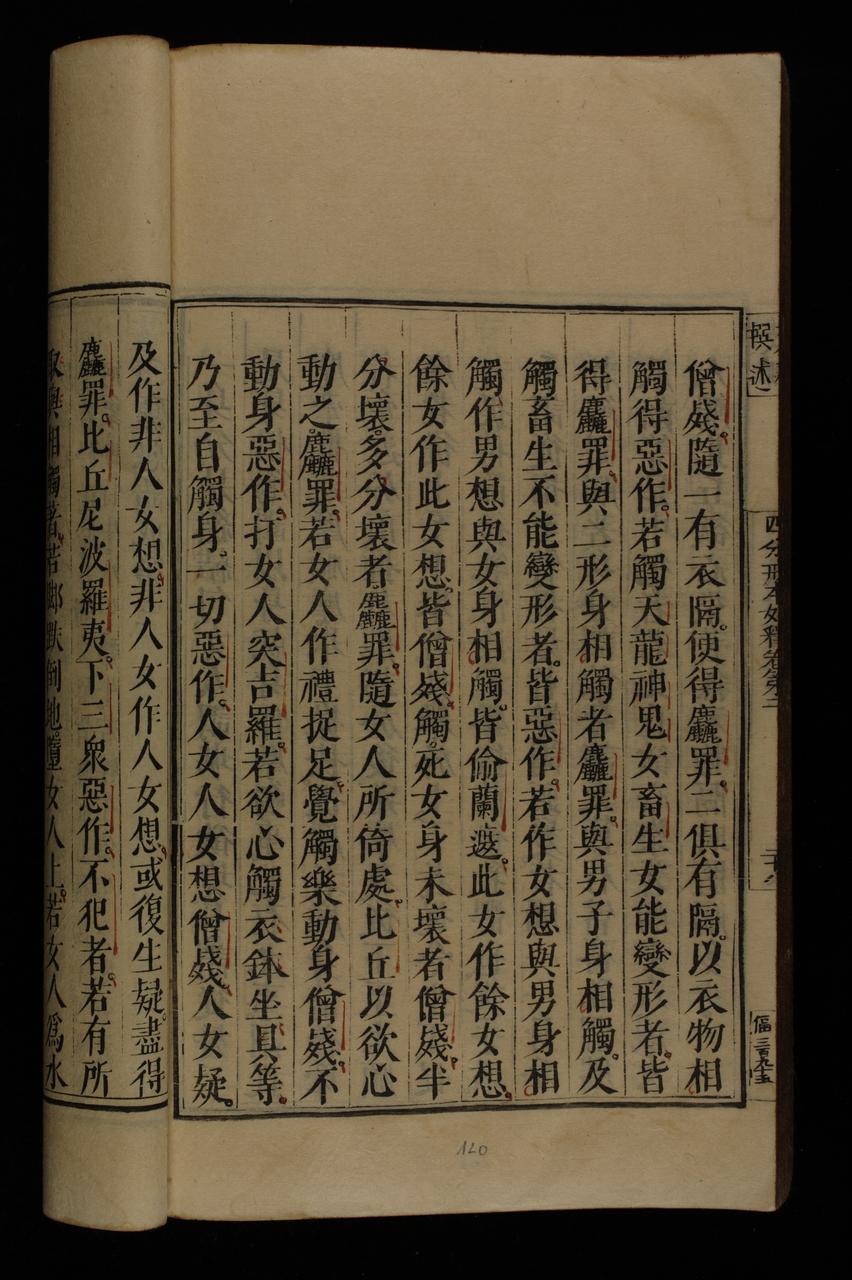 撰述
四分戒本如釋卷第三
僧殘。隨一有衣隔。便得麤罪。二俱有隔。以衣物相
觸得惡作。若觸天龍神鬼女畜生女能變形者。皆
得麤罪。與二形身相觸者麤罪。與男子身相觸。及
觸畜生不能變形者。皆惡作。若作女想與男身相
觸作男想與女身相觸。皆偷蘭遮。此女作餘女想。
餘女作此女想。皆僧殘。觸死女身未壞者僧殘。半
分壞。多分壞者麤罪。隨女人所倚處。比丘以欲心
動之麤罪。若女人作禮捉足。覺觸樂動身僧殘。不
動身惡作。打女人突吉羅。若欲心觸衣鉢坐具等。
乃至自觸身。一切惡作。人女人女想僧殘。人女疑。
及作非人女想。非人女作人女想。或復生疑。盡得
麤罪。比丘尼波羅夷。下三眾惡作。不犯者。若有所
取與相觸者。若腳跌倒地。墮女人上。若女人為水
120